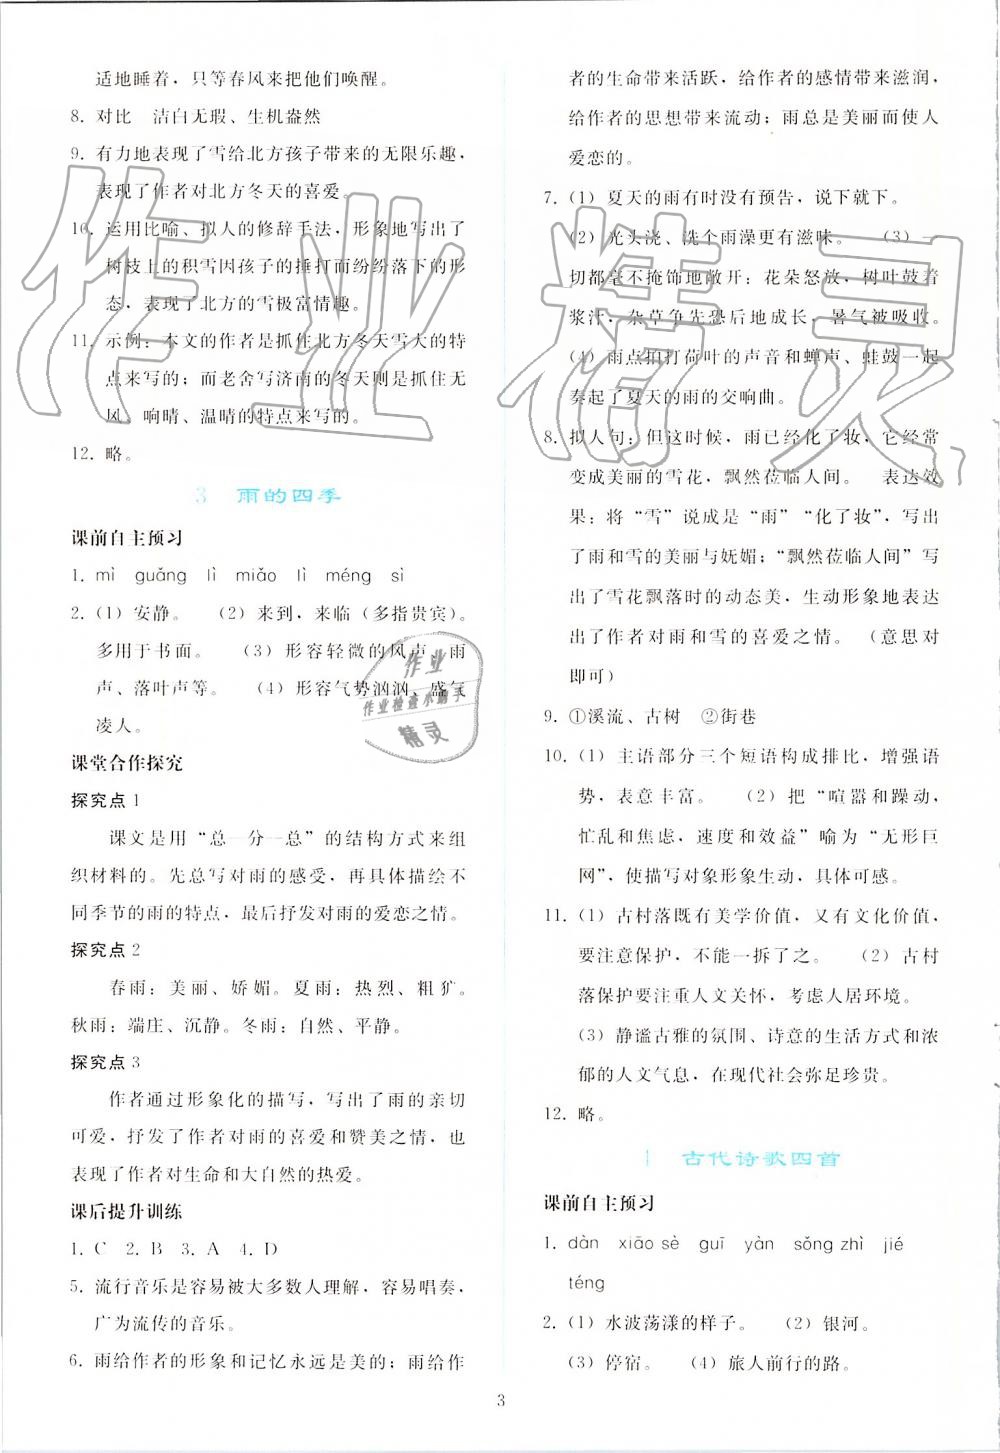 适地睡着，只等春风来把他们唤醒。
8. 对比　洁白无瑕、生机盎然
9. 有力地表现了雪给北方孩子带来的无限乐趣，
表现了作者对北方冬天的喜爱。
10. 运用比喻、拟人的修辞手法，形象地写出了
树枝上的积雪因孩子的捶打而纷纷落下的形
态，表现了北方的雪极富情趣。
11. 示例：本文的作者是抓住北方冬天雪大的特
点来写的；而老舍写济南的冬天则是抓住无
风、响晴、温晴的特点来写的。
12. 略。
3　雨的四季
课前自主预习
1. mì　guǎng　lì　miǎo　lì　méng　sì
2. (1) 安静。　(2) 来到，来临（多指贵宾）。
多用于书面。　(3) 形容轻微的风声、雨
声、落叶声等。　(4) 形容气势汹汹、盛气
凌人。
课堂合作探究
探究点 1
课文是用“总—分—总”的结构方式来组
织材料的。先总写对雨的感受，再具体描绘不
同季节的雨的特点，最后抒发对雨的爱恋之情。
探究点 2
春雨：美丽、娇媚。夏雨：热烈、粗犷。
秋雨：端庄、沉静。冬雨：自然、平静。
探究点 3
作者通过形象化的描写，写出了雨的亲切
可爱，抒发了作者对雨的喜爱和赞美之情，也
表现了作者对生命和大自然的热爱。
课后提升训练
1. C　2. B　3. A　4. D
5. 流行音乐是容易被大多数人理解，容易唱奏，
广为流传的音乐。
6. 雨给作者的形象和记忆永远是美的；雨给作
者的生命带来活跃，给作者的感情带来滋润，
给作者的思想带来流动；雨总是美丽而使人
爱恋的。
7. (1) 夏天的雨有时没有预告，说下就下。
(2) 光头浇、洗个雨澡更有滋味。　(3) 一
切都毫不掩饰地敞开：花朵怒放，树叶鼓着
浆汁，杂草争先恐后地成长，暑气被吸收。
(4) 雨点拍打荷叶的声音和蝉声、蛙鼓一起
奏起了夏天的雨的交响曲。
8. 拟人句：但这时候，雨已经化了妆，它经常
变成美丽的雪花，飘然莅临人间。　表达效
果：将“雪”说成是“雨”“化了妆”，写出
了雨和雪的美丽与妩媚；“飘然莅临人间”写
出了雪花飘落时的动态美，生动形象地表达
出了作者对雨和雪的喜爱之情。（意思对
即可）
9. ①溪流、古树　②街巷
10. (1) 主语部分三个短语构成排比，增强语
势，表意丰富。　(2) 把“喧嚣和躁动，
忙乱和焦虑，速度和效益”喻为“无形巨
网”，使描写对象形象生动，具体可感。
11. (1) 古村落既有美学价值，又有文化价值，
要注意保护，不能一拆了之。　(2) 古村
落保护要注重人文关怀，考虑人居环境。
(3) 静谧古雅的氛围、诗意的生活方式和浓
郁的人文气息，在现代社会弥足珍贵。
12. 略。
古代诗歌四首
课前自主预习
1. dàn　xiāo sè　guī　yàn　sǒng zhì　jié
téng
2. (1) 水波荡漾的样子。　(2) 银河。
(3) 停宿。　(4) 旅人前行的路。
3
作业精灵
作业
作业检查小助手
精灵